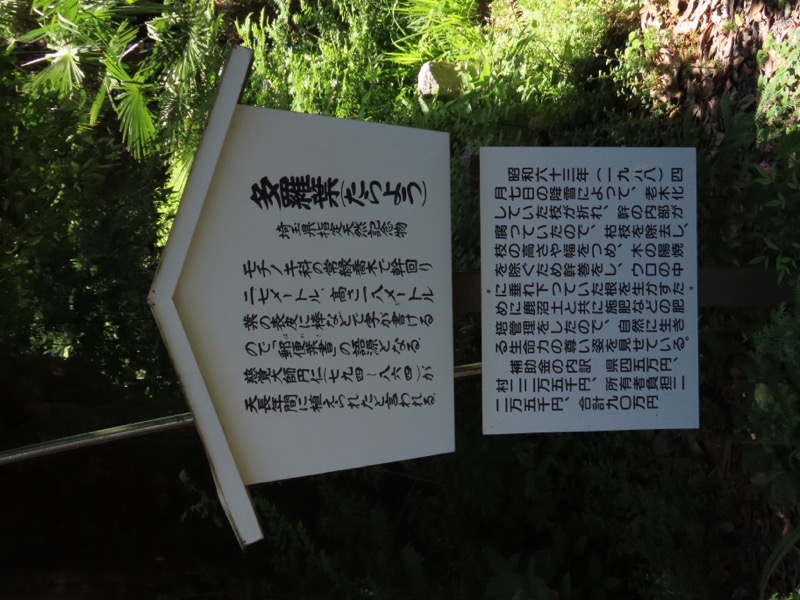 多羅葉(たらよう)
埼玉県指定天然記念物
モチノキ科の常緑喬木で幹回り
二七メートル、高さ一八メートル
葉の表皮に棒などで字が書ける
ので、「郵便葉書」の語源となる。
慈覚大師円仁(七九四〜八六四)が
天長年間に植えられたと言われる。
昭和六十三年(一九八八)四
月七日の降雪によって、老木化
していた枝が折れ、幹の内部が
腐っていたので、枯枝を除去し、
枝の高さや幅をつめ、木の陽焼
を除くため幹巻をし、ウロの中
に垂れ下っていた根を生かすた
めに鹿沼土と共に施肥などの肥
培管理をしたので、自然に生き
る生命力の尊い姿を見せている。
補助金の内訳 県四五万円、
村二二万五千円、所有者負担二
二万五千円、合計九〇万円